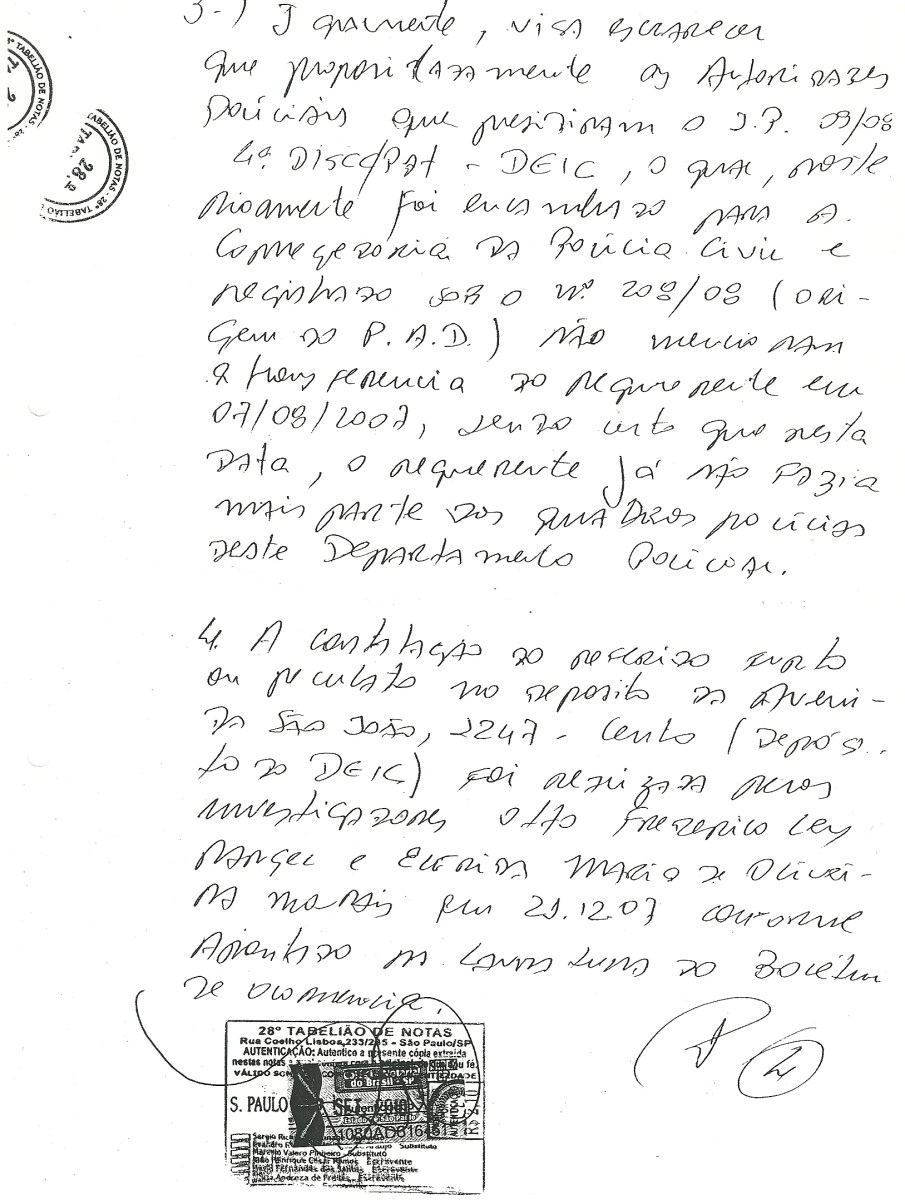 3-) Igualmente, visa esclarecer
que propositadamente as Autoridades
Policiais que presidiram o I.P. 09/08
4ª DISCC/PAT - DEIC, o qual, poste
riormente foi encaminhado para a
Corregedoria da Polícia Civil e
registrado sob o nº 208/08 (ORI-
gem do P.A.D.) não mencionam
a transferencia do requerente em
07/08/2007, sendo certo que nesta
data, o requerente já não fazia
mais parte dos quadros policiais
deste Departamento Policial.
4. A constatação do referido furto
ou peculato no deposito da Aveni-
da São João, 2247 - Centro (Depósi-
to do DEIC) foi realizada pelos
investigadores Otto Frederico Ley
Rangel e Elerida Maria de Olivei-
ra Morais em 29.12.07 conforme
Apontado na lavratura do Boletim
de ocorrencia.
2
TABELIÃO DE NOTAS - 28º
TABELIÃO DE NOTAS - 28º TABELIÃO
28º TABELIÃO DE NOTAS
Rua Coelho Lisboa,233/235 - São Paulo/SP
AUTENTICAÇÃO: Autentico a presente cópia extraída
nestas notas
VÁLIDO
do Brasil - SP
S. PAULO SET. 2010
1080AD616451
Substituto
Marcelo Valero Pinheiro - Substituto
João Henrique César Ramos Escrevente
Fernandes dos Santos Escrevente
Andreza de Freitas Escrevente